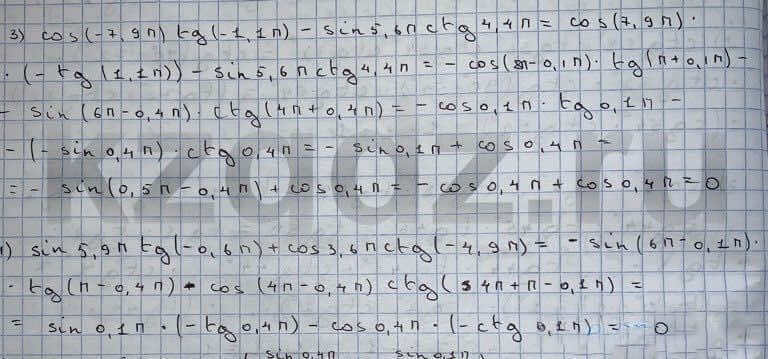 3) cos(-7,9π) tg(-1,1π) - sin5,6π ctg4,4π = cos(7,9π)·
·(-tg(1,1π)) - sin5,6π ctg4,4π = -cos(8π-0,1π)·tg(π+0,1π)-
- sin(6π-0,4π)·ctg(4π+0,4π) = -cos0,1π·tg0,1π -
-(-sin0,4π)·ctg0,4π = -sin0,1π + cos0,4π =
= -sin(0,5π-0,4π) + cos0,4π = -cos0,4π + cos0,4π = 0
) sin5,9π tg(-0,6π) + cos3,6π ctg(-4,9π) = -sin(6π-0,1π)·
·tg(π-0,4π) - cos(4π-0,4π) ctg(4π+π-0,1π) =
= sin0,1π·(-tg0,4π) - cos0,4π·(-ctg0,1π) = 0
sin0,4π sin0,1π
kzgdz.ru